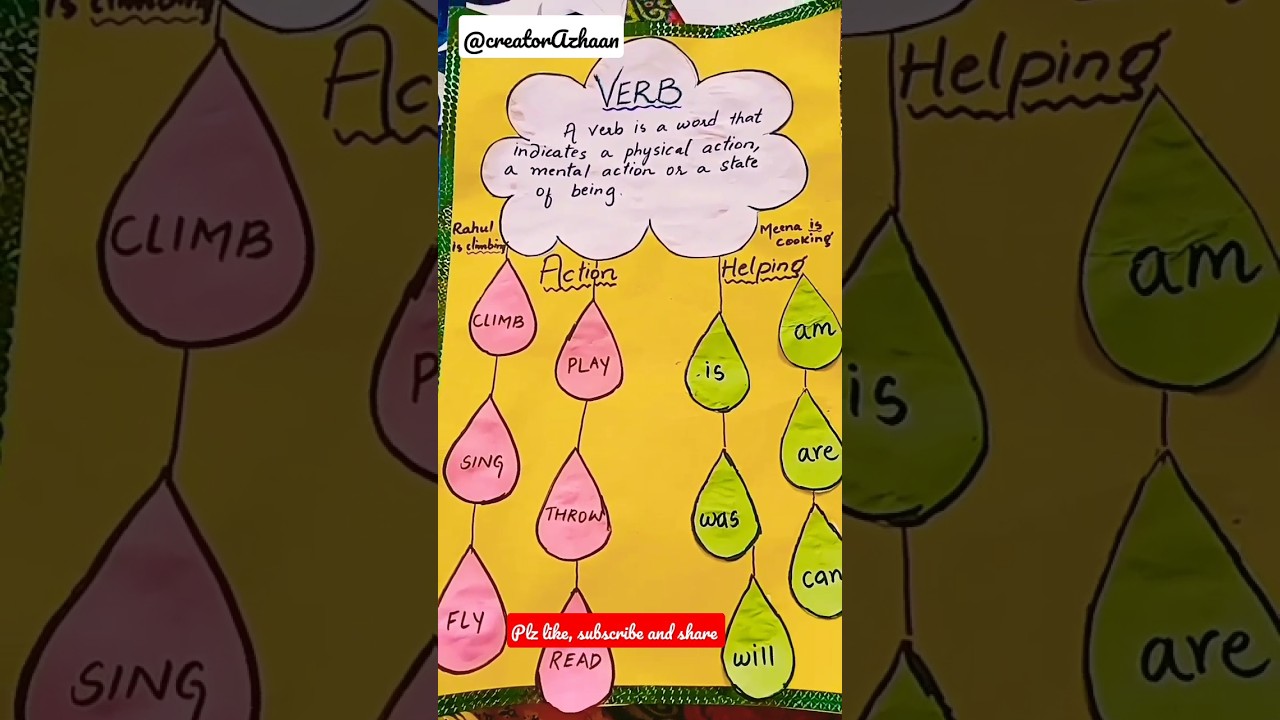 @creatorAzhaan
VERB
A verb is a word that
indicates a physical action,
a mental action or a state
of being.
Rahul
is climbing
Meena is
cooking
Action
Helping
CLIMB
PLAY
is
am
SING
THROW
was
are
FLY
READ
will
can
Plz like, subscribe and share
is climbing
Ac
CLIMB
P
SING
Helping
am
is
are